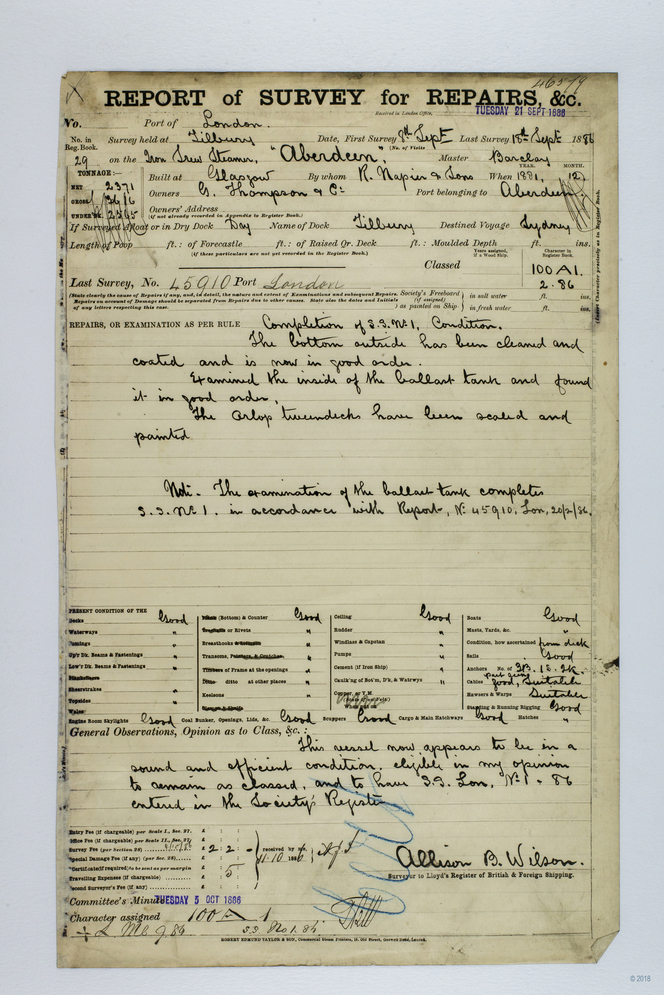 46579
REPORT of SURVEY for REPAIRS, &c.
Received in London Office, TUESDAY 21 SEPT 1886
No. Port of London.
No. in Reg. Book. Survey held at Tilbury Date, First Survey 8th Sept Last Survey 18th Sept 1886
(No. of Visits
29 on the Iron Screw Steamer, "Aberdeen," Master Barclay
TONNAGE:— YEAR. MONTH.
NET 2371 Built at Glasgow By whom R. Napier & Sons When 1881, 12
GROSS 3616 Owners G. Thompson & Co Port belonging to Aberdeen
UNDER DK. 2565 Owners' Address
(If not already recorded in Appendix to Register Book.)
If Surveyed Afloat or in Dry Dock Dry Name of Dock Tilbury Destined Voyage Sydney
Length of Poop ft.: of Forecastle ft.: of Raised Qr. Deck ft.: Moulded Depth ft. ins.
(If these particulars are not yet recorded in the Register Book.)
Years assigned, if a Wood Ship. Character in Register Book.
Classed 100 A1.
2.86
Last Survey, No. 45910 Port London
(State clearly the cause of Repairs if any, and, in detail, the nature and extent of Examinations and subsequent Repairs.
Repairs on account of Damage should be separated from Repairs due to other causes. State also the dates and Initials
of any letters respecting this case.
Society's Freeboard (if assigned) as painted on Ship in salt water ft. ins.
in fresh water ft. ins.
REPAIRS, OR EXAMINATION AS PER RULE Completion of S.S. No 1, Condition.
The bottom outside has been cleaned and
coated and is now in good order.
Examined the inside of the ballast tank and found
it in good order.
The Orlop tweendecks have been scaled and
painted
Note. The examination of the ballast tank completes
S.S. No 1. in accordance with Report, No 45910, Lon, 20/2/86.
PRESENT CONDITION OF THE
Decks Good
Waterways "
Comings "
Upr Dk. Beams & Fastenings "
Lowr Dk. Beams & Fastenings "
Sheerstrakes "
Topsides "
Wales
Engine Room Skylights Good
(Bottom) & Counter Good
or Rivets "
Breasthooks "
Transoms, "
of Frame at the openings "
ditto at other places "
Keelsons "
Coal Bunker, Openings, Lids, &c. Good
Ceiling Good
Rudder "
Windlass & Capstan "
Pumps "
Cement (if Iron Ship) "
Caulk'ng of Bot'm, D'ks, & Waterwys "
Copper, or Y.M.
Scuppers Good
Cargo & Main Hatchways Good
Boats Good
Masts, Yards, &c. "
Condition, how ascertained from deck
Sails Good
Anchors No. of 3B. 1S. 2K.
Cables good, Suitable
Hawsers & Warps Suitable
Standing & Running Rigging Good
Hatches "
General Observations, Opinion as to Class, &c.:
This vessel now appears to be in a
sound and efficient condition, eligible in my opinion
to remain as classed, and to have S.S. Lon, No 1 - 86
entered in the Society's Register
Entry Fee (if chargeable) per Scale I., Sec. 27. £
Office Fee (if chargeable) per Scale II., Sec. 27. £
Survey Fee (per Section 28) £ 2 : 2 : - received by me,
Special Damage Fee (if any) (per Sec. 28) £ 11.10 1886
Certificate (if required) to be sent as per margin 5
Travelling Expenses (if chargeable) £
Second Surveyor's Fee (if any) £
Allison B. Wilson.
Surveyor to Lloyd's Register of British & Foreign Shipping.
Committee's Minute TUESDAY 5 OCT 1886
Character assigned 100 A 1
+ L.M.C. 9.86 S.S. No 1. 86
ROBERT EDMUND TAYLOR & SON, Commercial Steam Printers, 19, Old Street, Goswell Road, London.
© 2018